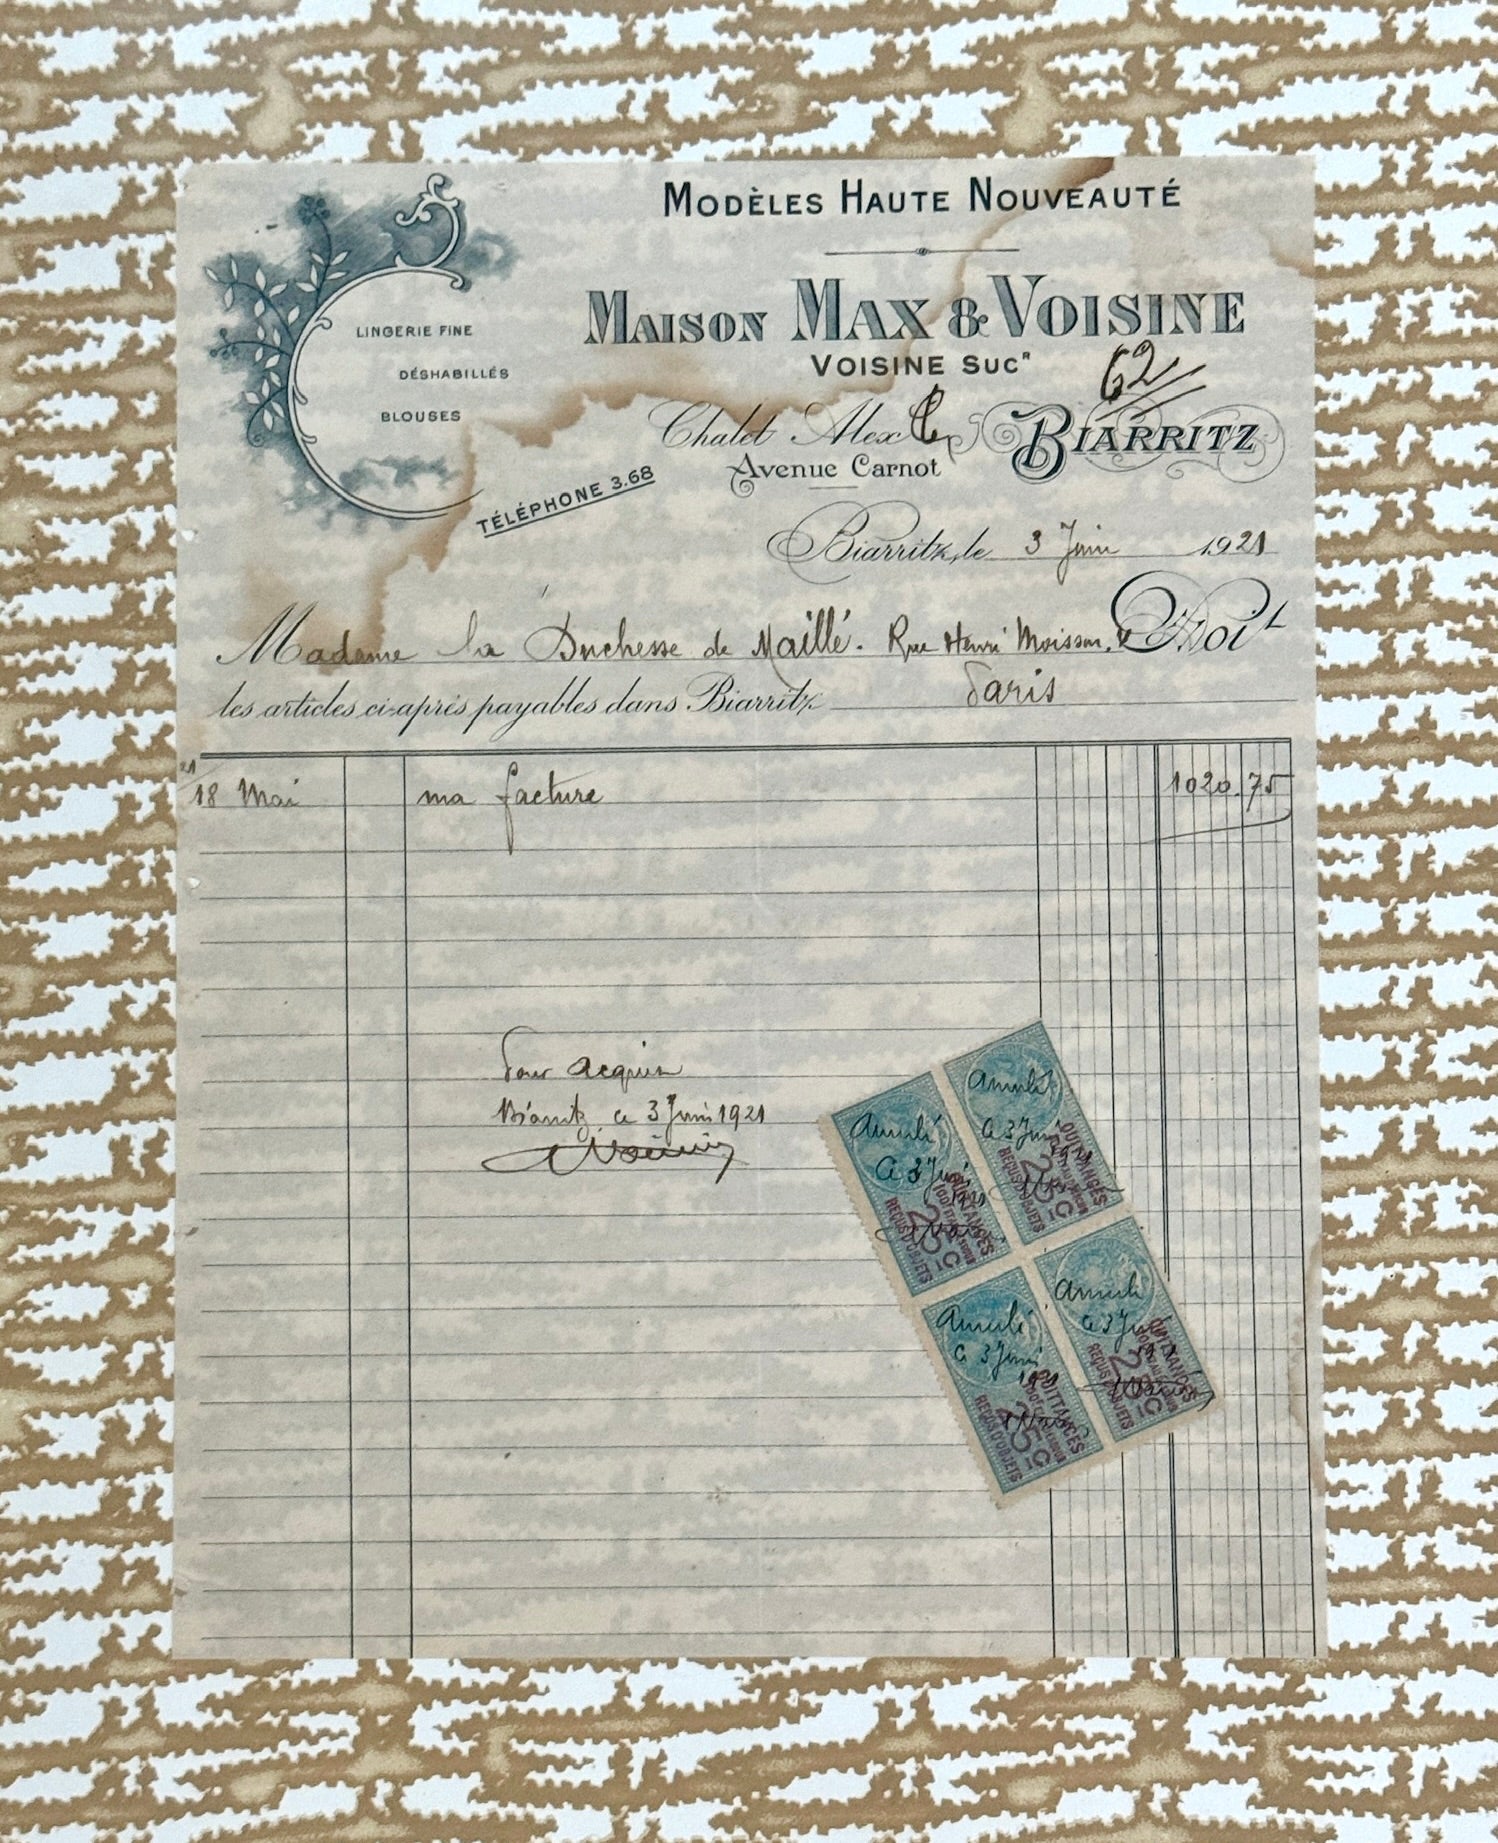 MODÈLES HAUTE NOUVEAUTÉ
LINGERIE FINE
DÉSHABILLÉS
BLOUSES
MAISON MAX & VOISINE
VOISINE SUCR
62
Chalet Alex
Avenue Carnot
BIARRITZ
TÉLÉPHONE 3.68
Biarritz, le 3 Juin 1921
Madame la Duchesse de Maillé. Rue Henri Moissan. Doit
Paris
les articles ci-après payables dans Biarritz
21
18 Mai ma facture 1020.75
Pour acquit
Biarritz, le 3 Juin 1921
Voisine
Annulé
le 3 Juin
1921
QUITTANCES
25c
REÇUS D'OBJETS
Annulé
le 3 Juin
1921
QUITTANCES
25c
REÇUS D'OBJETS
Annulé
le 3 Juin
1921
QUITTANCES
25c
REÇUS D'OBJETS
Annulé
le 3 Juin
1921
QUITTANCES
25c
REÇUS D'OBJETS